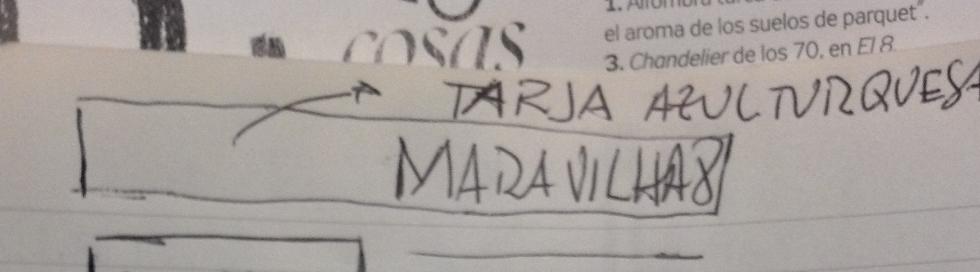 cosas
1. Alfombra
el aroma de los suelos de parquet".
3. Chandelier de los 70, en El 8.
TARJA AZUL TURQUESA
MARAVILHAS